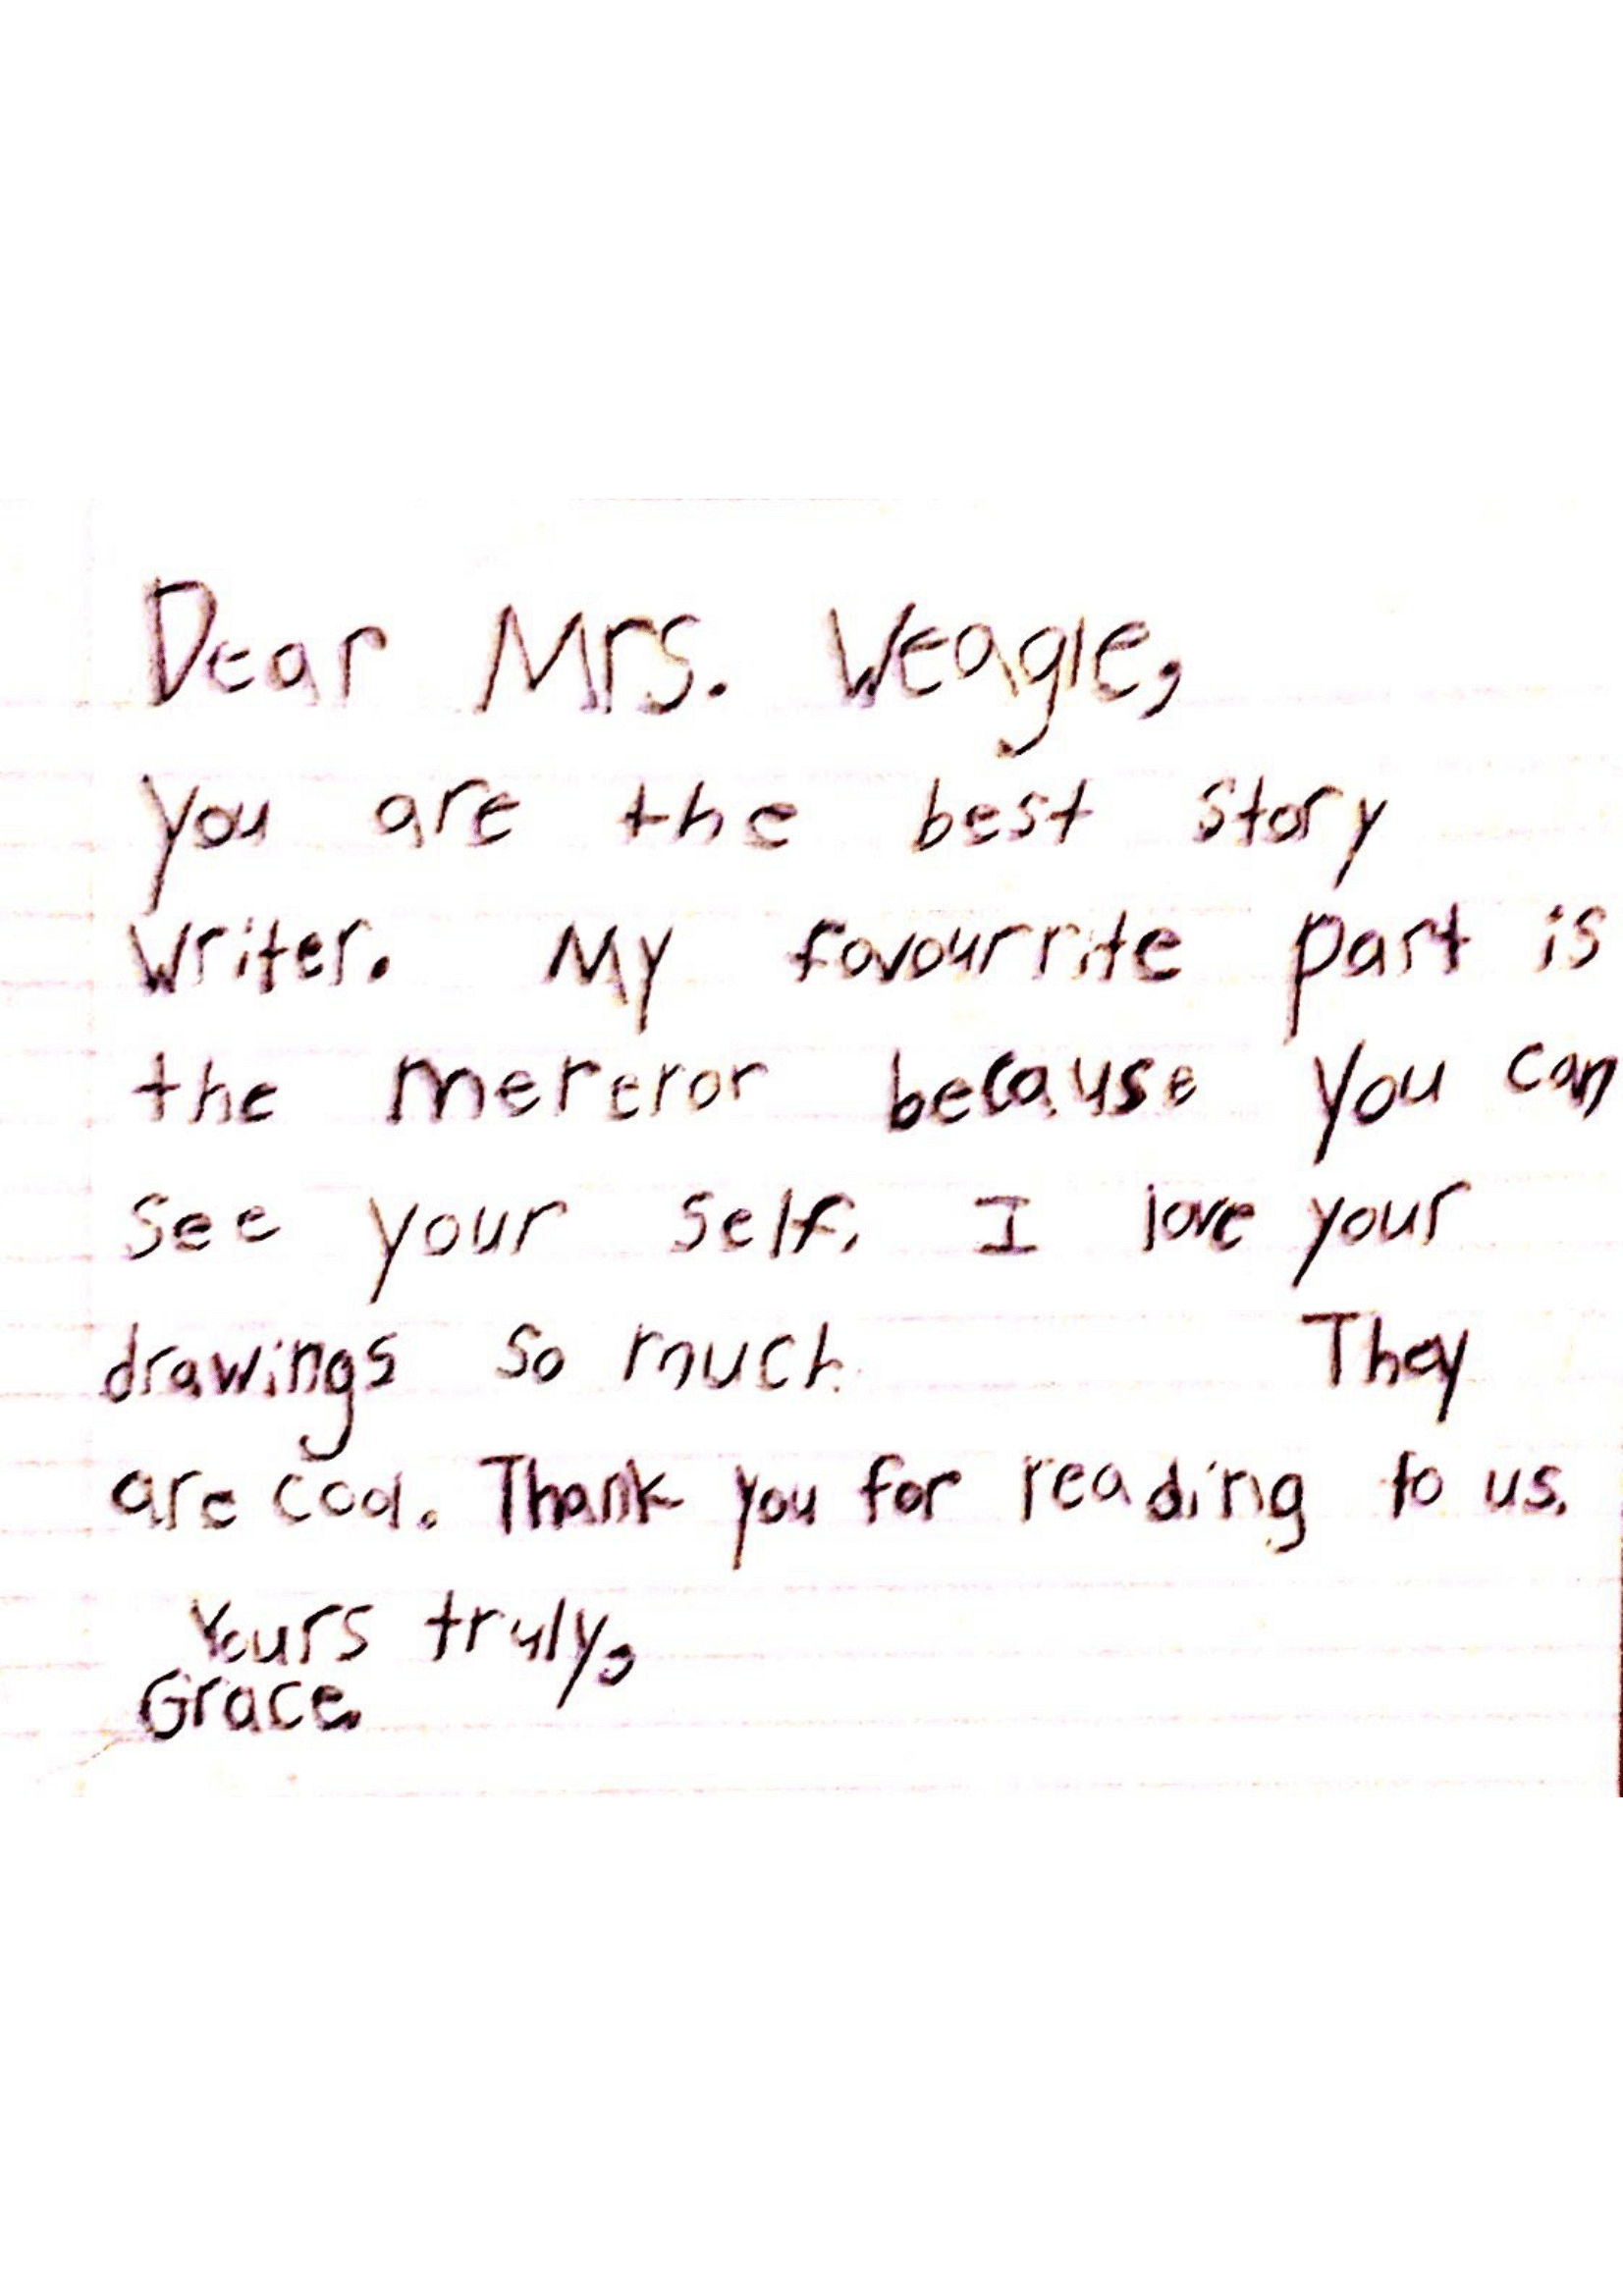 Dear Mrs. Weagle,
you are the best story
writer. My favourrite part is
the mereror because you can
see your self. I love your
drawings so much. They
are cool. Thank you for reading to us.
Yours truly,
Grace.